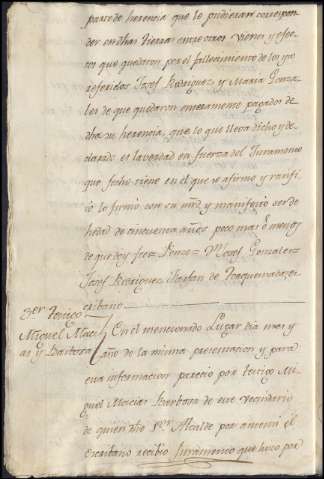 parte de herencia que le pudieran correspon
der en dhas tierras entre otros vienes y efec
tos que quedaron por el fallecimiento de los ya
referidos Josef Rodriguez y Maria Gonza
les de que quedaron enteramente pagados de
dha su herencia, que lo que lleva dicho y de
clarado es la verdad en fuerza del Juramento
que fecho tiene en el que se afirmo y ratifi
co lo firmo con su md y manifesto ser de
hedad de cincuenta años poco mas ó menos
de que doy fee Josef Gonzalez
Josef Rodriguez
cribano
3er Testigo
Miguel Maci
as y Barbosa
En el mencionado Lugar dia mes y
año de la misma presentacion y para
esta informacion parecio por testigo Mi
guel Macias Barbosa de este vecindario
de quien dho Sor Alcalde por ante mi el
Escribano recibio Juramento que hizo por